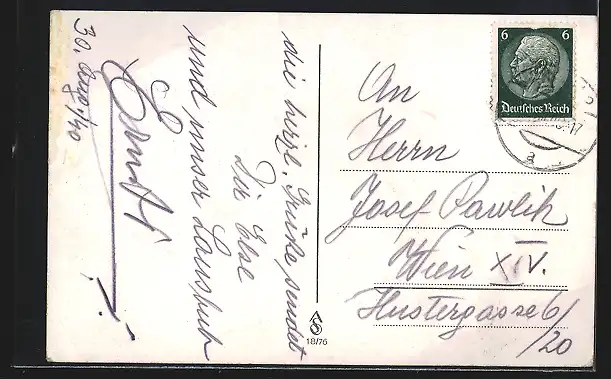 30. Aug./40
die herzl. Grüße sendet
Dir Else
und unser Lausbub
Ernst!
6 6
Deutsches Reich
An
Herrn
Josef Pawlik
Wien XIV.
Hustergasse 6/
/20
18/76